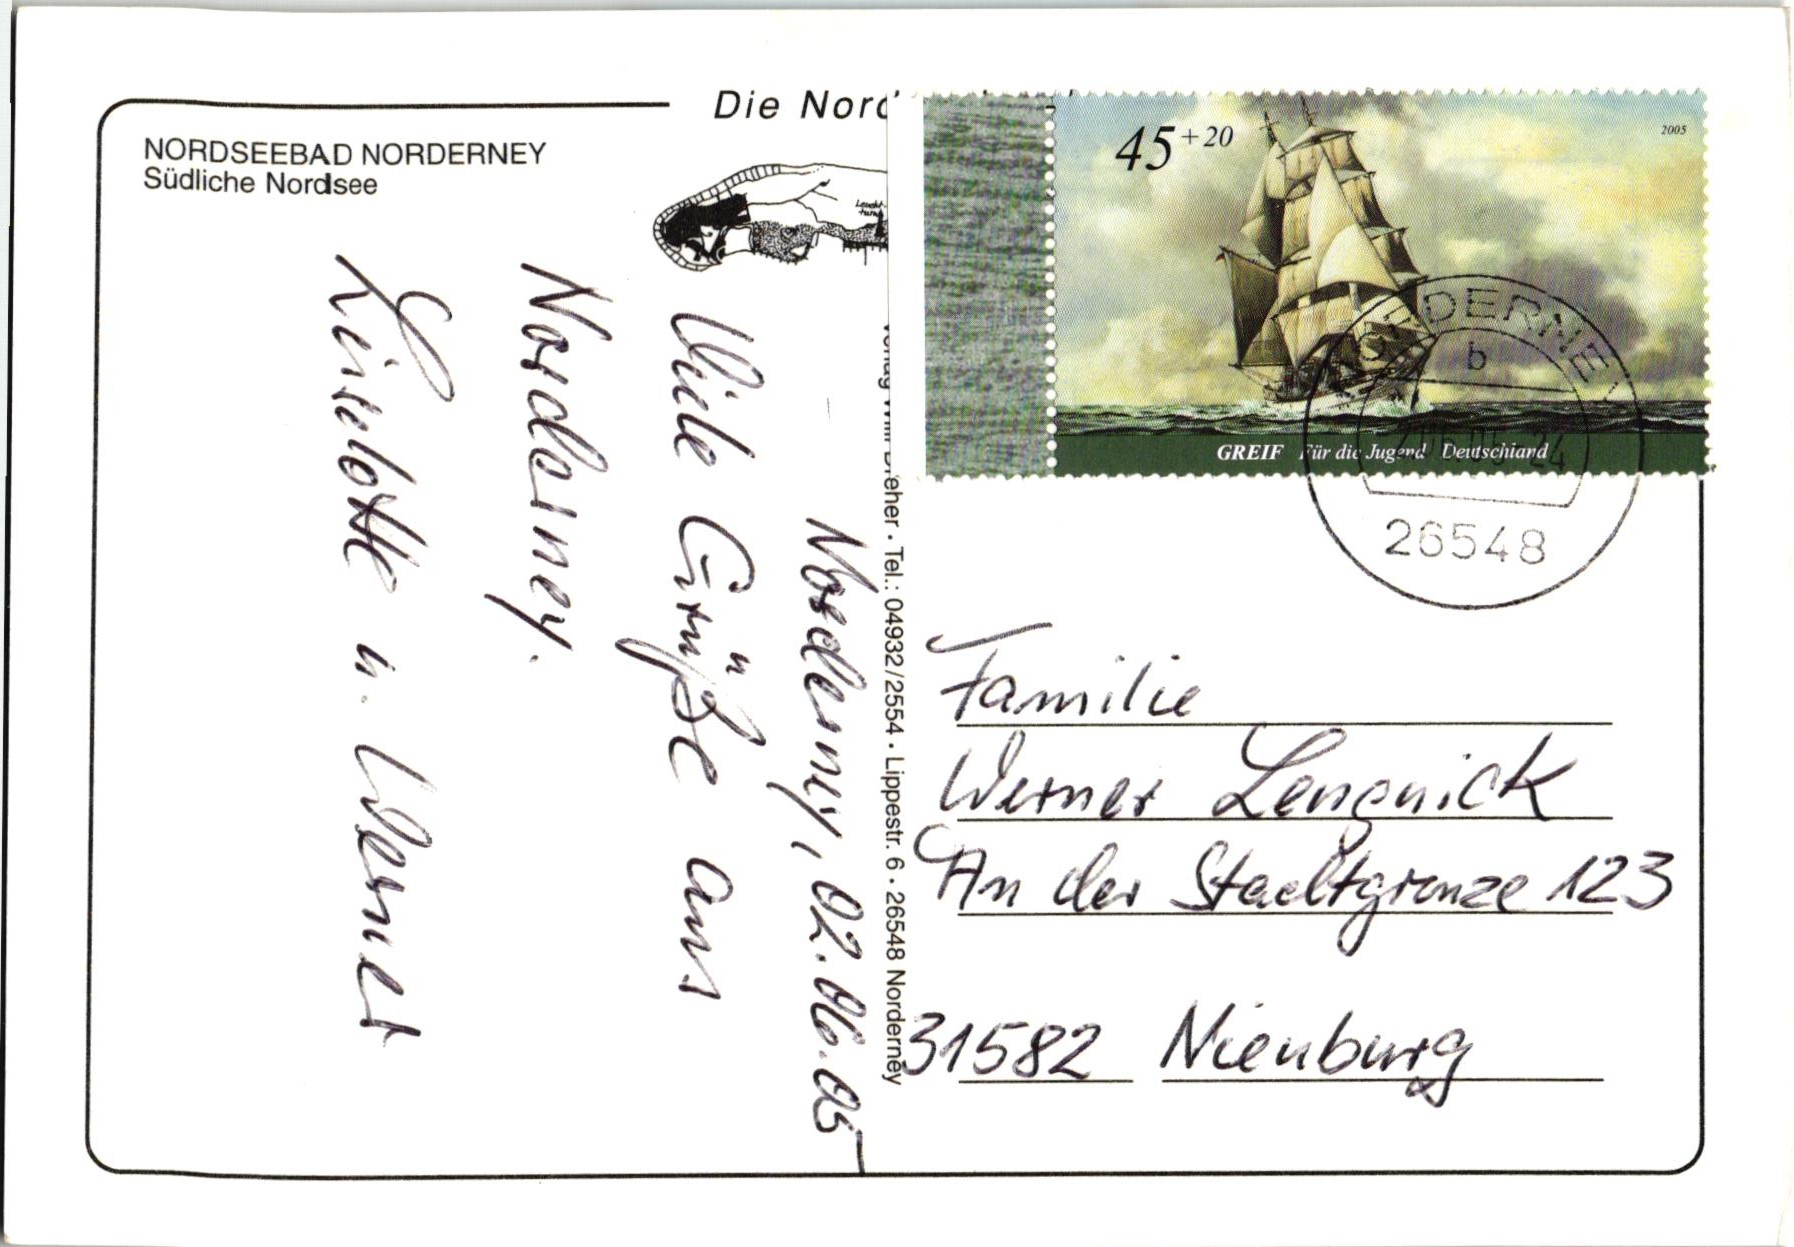 NORDSEEBAD NORDERNEY
Südliche Nordsee
Die Nord
Leucht-
turm
45 + 20
2005
GREIF Für die Jugend Deutschland
NORDERNEY
b
24
26548
Dreher · Tel.: 04932/2554 · Lippestr. 6 · 26548 Norderney
Norderney, 02.06.05
Viele Grüße aus
Norderney.
Liselotte u. Werner
Familie
Werner Lengnick
An der Stadtgrenze 123
31582 Nienburg